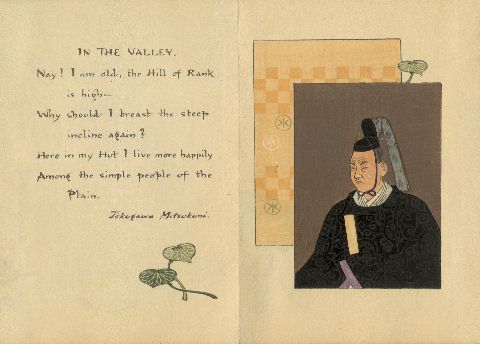 IN THE VALLEY.
Nay! I am old, the Hill of Rank
is high—
Why should I breast the steep
incline again?
Here in my Hut I live more happily
Among the simple people of the
Plain.
Tokugawa Mitsukuni.